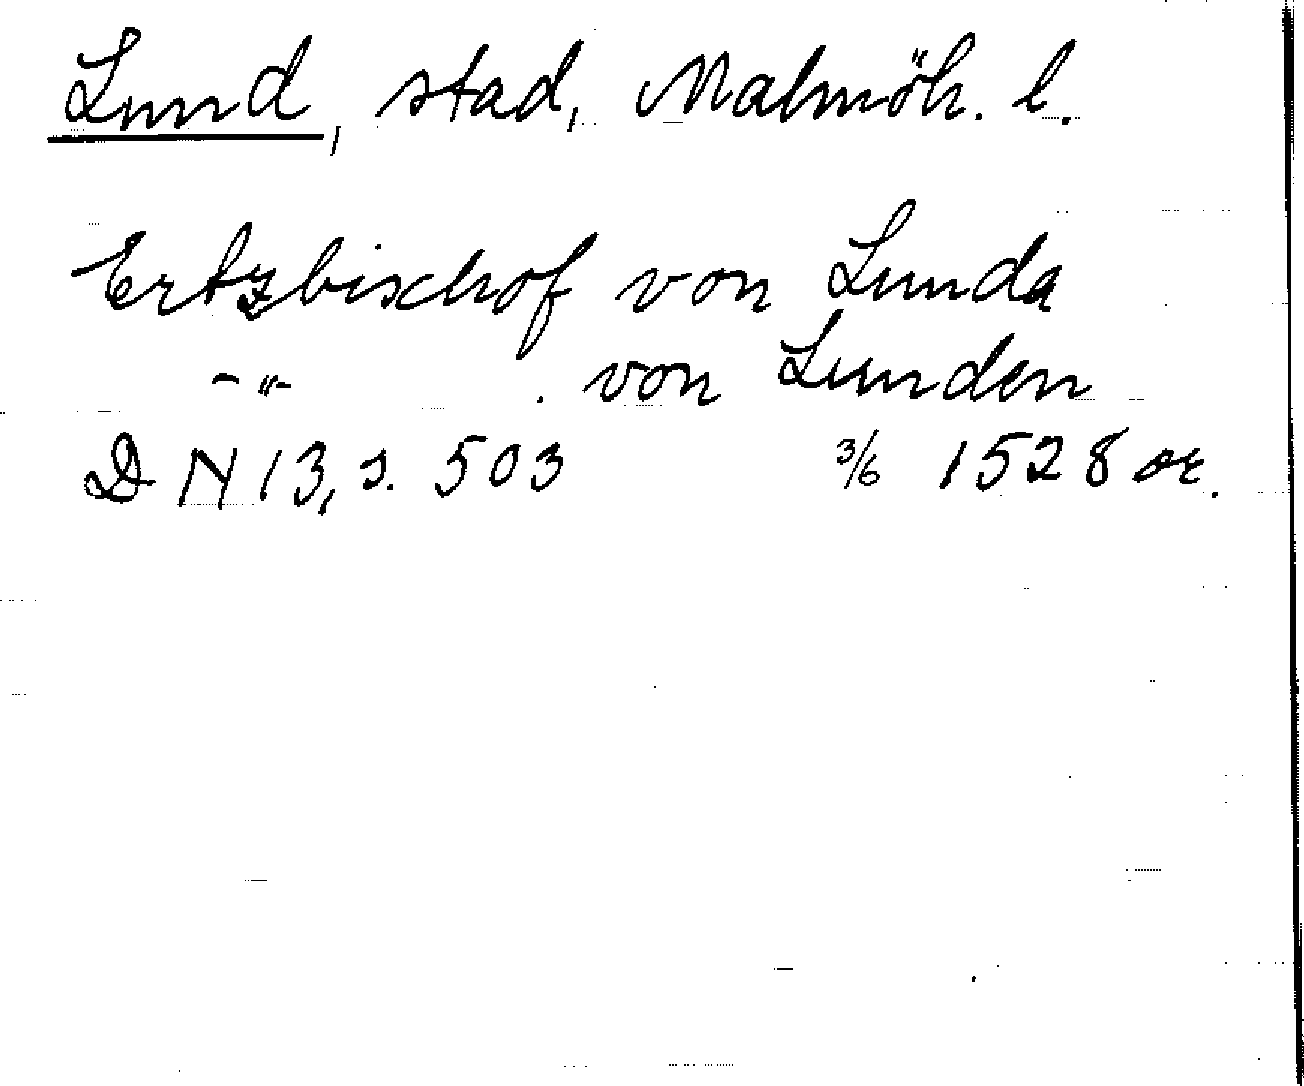 Lund, stad, Malmöh. l.
Ertzbischof von Lunda
-"- von Lunden
DN 13, s. 503 3/6 1528 or.